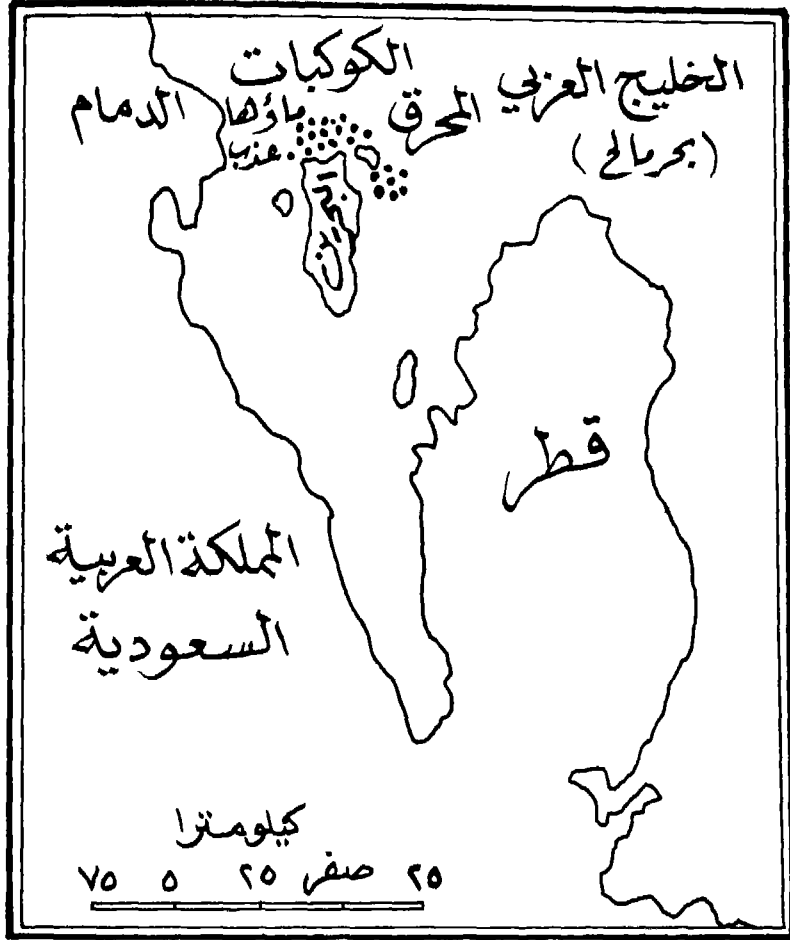 الكوكبات
الخليج العربي
(بحر مالح)
الدمام
ماؤها
عذب
المحرق
البحرين
قطر
المملكة العربية
السعودية
كيلومترا
٧٥ ٥ ٢٥ صفر ٢٥